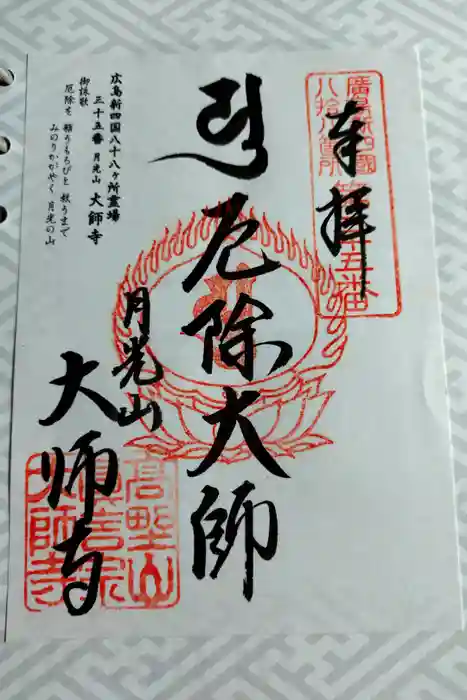 廣島新四國
八拾八箇所
第三十五番
奉拝
厄除大師
月光山
大師寺
広島新四国八十八ヶ所霊場
三十五番 月光山 大師寺
御詠歌
厄除を 願うもろびと 救うまで
みのりかがやく 月光の山
高野山
真言宗
大師寺